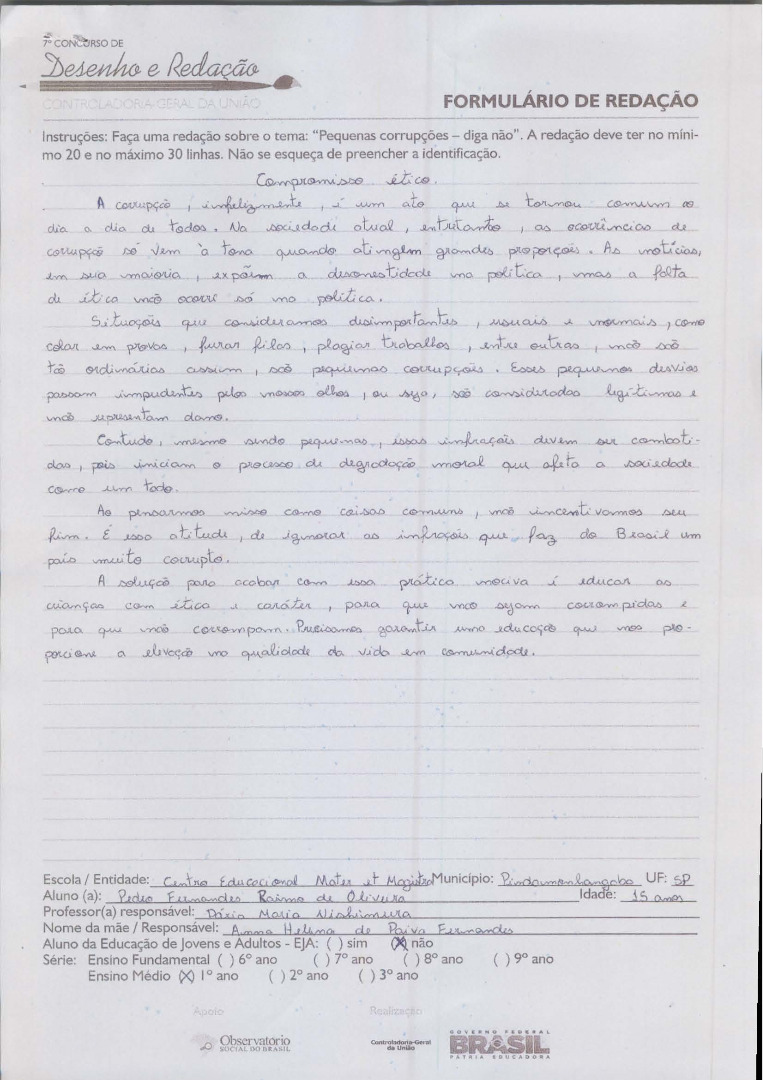 7º CONCURSO DE
Desenho e Redação
CONTROLADORIA-GERAL DA UNIÃO
FORMULÁRIO DE REDAÇÃO
Instruções: Faça uma redação sobre o tema: “Pequenas corrupções – diga não”. A redação deve ter no míni-
mo 20 e no máximo 30 linhas. Não se esqueça de preencher a identificação.
Compromisso ético.
A corrupção, infelizmente, é um ato que se tornou comum ao
dia a dia de todos. Na sociedade atual, entretanto, as ocorrências de
corrupção só vem à tona quando atingem grandes proporções. As notícias,
em sua maioria, expõem a desonestidade na política, mas a falta
de ética não ocorre só na política.
Situações que consideramos desimportantes, usuais e normais, como
colar em provas, furar filas, plagiar trabalhos, entre outras, não são
tão ordinárias assim, são pequenas corrupções. Esses pequenos desvios
passam impudentes pelos nossos olhos, ou seja, são considerados legítimos e
não representam dano.
Contudo, mesmo sendo pequenas, essas infrações devem ser combati-
das, pois iniciam o processo de degradação moral que afeta a sociedade
como um todo.
Ao pensarmos nisso como coisas comuns, não incentivamos seu
fim. É essa atitude, de ignorar as infrações que faz do Brasil um
país muito corrupto.
A solução para acabar com essa prática nociva é educar as
crianças com ética e caráter, para que não sejam corrompidas e
para que não corrompam. Precisamos garantir uma educação que nos pro-
porcione a elevação na qualidade da vida em comunidade.
Escola / Entidade: Centro Educacional Mater et Magistra Município: Pindamonhangaba UF: SP
Aluno (a): Pedro Fernandes Raimo de Oliveira Idade: 15 anos
Professor(a) responsável: Dázia Maria Nishimura
Nome da mãe / Responsável: Anna Helena de Paiva Fernandes
Aluno da Educação de Jovens e Adultos - EJA: ( ) sim (X) não
Série: Ensino Fundamental ( ) 6º ano ( ) 7º ano ( ) 8º ano ( ) 9º ano
Ensino Médio (X) 1º ano ( ) 2º ano ( ) 3º ano
Apoio Realização
Observatório
SOCIAL DO BRASIL
Controladoria-Geral
da União
GOVERNO FEDERAL
BRASIL
PÁTRIA EDUCADORA